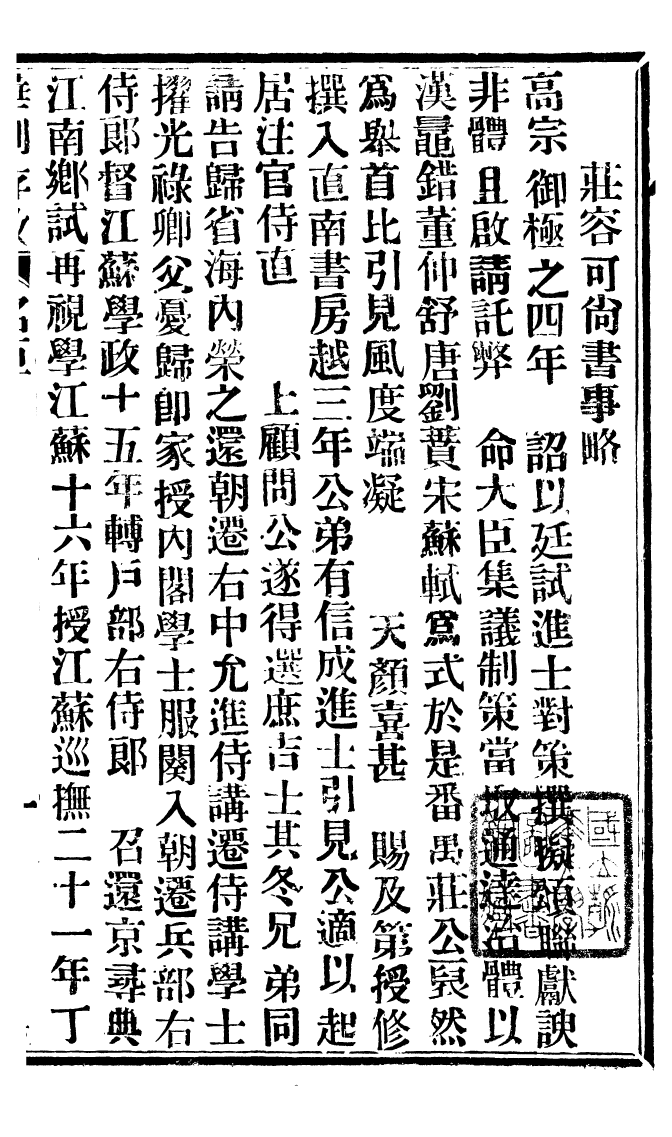 莊容可尚書事略
高宗御極之四年　詔以廷試進士對策撰擬頌聯獻諛
非體且啟請託弊　命大臣集議制策當取通達治體以
漢鼂錯董仲舒唐劉蕡宋蘇軾爲式於是番禺莊公褎然
爲舉首比引見風度端凝　天顏喜甚　賜及第授修
撰入直南書房越三年公弟有信成進士引見公適以起
居注官侍直　上顧問公遂得選庶吉士其冬兄弟同
請告歸省海內榮之還朝遷右中允進侍講遷侍講學士
擢光祿卿父憂歸卽家授內閣學士服闋入朝遷兵部右
侍郞督江蘇學政十五年轉戶部右侍郞　召還京尋典
江南鄕試再視學江蘇十六年授江蘇巡撫二十一年丁